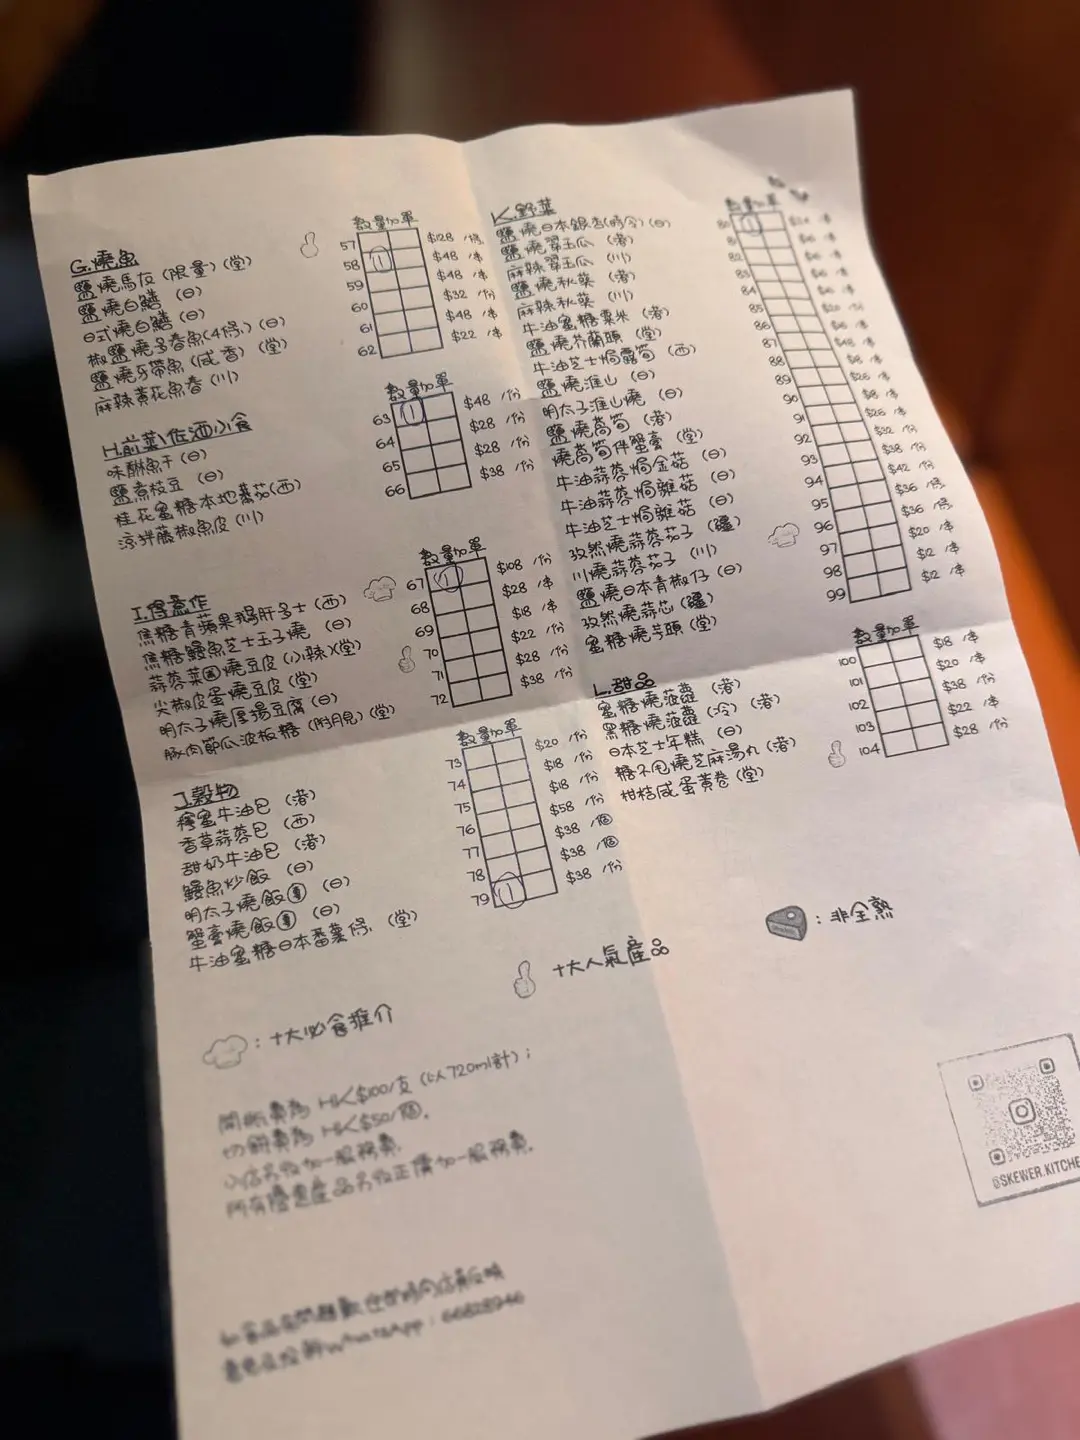 數量 加單
G.燒魚
鹽燒馬友 (限量) (堂) 57 $128 /條
鹽燒白鱔 (日) 58 1 $48 /串
日式燒白鱔 (日) 59 $48 /串
椒鹽燒多春魚(4條) (日) 60 $32 /份
鹽燒牙帶魚 (咸香) (堂) 61 $48 /串
麻辣黃花魚春 (川) 62 $22 /串
數量 加單
H.前菜\佐酒小食
味醂魚干 (日) 63 1 $48 /份
鹽煮枝豆 (日) 64 $28 /份
桂花蜜糖本地蕃茄(西) 65 $28 /份
涼拌藤椒魚皮 (川) 66 $38 /份
數量 加單
I.得意作
焦糖青蘋果鵝肝多士 (西) 67 1 $108 /份
焦糖鰻魚芝士玉子燒 (日) 68 $28 /串
蒜蓉菜圃燒豆皮 (小辣)(堂) 69 $18 /串
尖椒皮蛋燒豆皮 (堂) 70 $22 /份
明太子燒厚揚豆腐 (日) 71 $28 /份
豚肉節瓜波板糖 (附月見) (堂) 72 $38 /份
數量 加單
J.穀物
檸蜜牛油包 (港) 73 $20 /份
香草蒜蓉包 (西) 74 $18 /份
甜奶牛油包 (港) 75 $18 /份
鰻魚炒飯 (日) 76 $58 /份
明太子燒飯團 (日) 77 $38 /個
蟹膏燒飯團 (日) 78 $38 /個
牛油蜜糖日本番薯條 (堂) 79 1 $38 /份
數量 加單
K.野菜
鹽燒日本銀杏(時令) (日) 80 1
鹽燒翠玉瓜 (港) 81
麻辣翠玉瓜 (川) 82
鹽燒秋葵 (港) 83
麻辣秋葵 (川) 84
牛油蜜糖粟米 (港) 85
鹽燒芥蘭頭 (堂) 86
牛油芝士焗露筍 (西) 87
鹽燒淮山 (日) 88
明太子淮山燒 (日) 89
鹽燒萵筍 (港) 90
燒萵筍伴蟹膏 (堂) 91
牛油蒜蓉焗金菇 (日) 92 $32 /份
牛油蒜蓉焗雜菇 (日) 93 $38 /份
牛油芝士焗雜菇 (日) 94 $42 /份
孜然燒蒜蓉茄子 (疆) 95 $36 /條
川燒蒜蓉茄子 (川) 96 $36 /條
鹽燒日本青椒仔 (日) 97 $20 /串
孜然燒蒜芯 (疆) 98 $12 /串
蜜糖燒芋頭 (堂) 99 $12 /串
數量 加單
L.甜品
蜜糖燒菠蘿 (港) 100 $18 /串
黑糖燒菠蘿 (冷) (港) 101 $20 /串
日本芝士年糕 (日) 102 $38 /份
糖不甩燒芝麻湯丸 (港) 103 $22 /串
柑桔咸蛋黃卷 (堂) 104 $28 /份
: 非全熟
十大人氣產品
: 十大必食推介
開瓶費為 HK$100/支 (以720ml計) ;
切餅費為 HK$50/個.
小店另收加一服務費.
所有優惠產品另收正價加一服務費.
WhatsApp : 66828946
@SKEWER.KITCHE